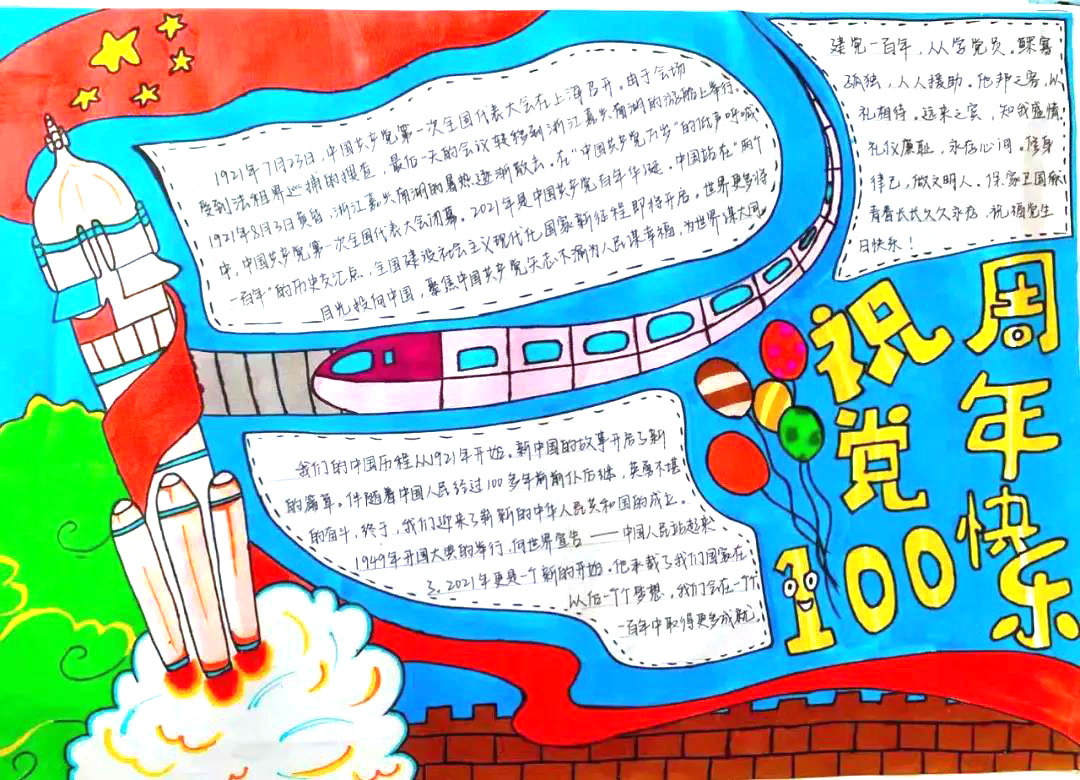 1921年7月23日，中国共产党第一次全国代表大会在上海召开。由于会场
受到法租界巡捕的搜查，最后一天的会议转移到浙江嘉兴南湖的游船上举行。
1921年8月3日黄昏，浙江嘉兴南湖的暑热逐渐散去。在“中国共产党万岁”的低声呼喊
中，中国共产党第一次全国代表大会闭幕。2021年是中国共产党百年华诞。中国站在“两个
一百年”的历史交汇点，全国建设社会主义现代化国家新征程即将开启。世界更多将
目光投向中国，聚焦中国共产党矢志不渝为人民谋幸福，为世界谋大同。
建党一百年，从容党员。鳏寡
孤独，人人援助。他邦之客，以
礼相待。远来之宾，知我盛情
礼仪廉耻，永存心间。修身
律己，做文明人。保家卫国献
青春长长久久永存，祝福党生
日快乐！
我们的中国历程从1921年开始。新中国的故事开启了新
的篇章。伴随着中国人民经过100多年前前仆后继，英勇不堪
的奋斗，终于，我们迎来了崭新的中华人民共和国的成立。
1949年开国大典的举行，向世界宣告——中国人民站起来
了。2021年更是一个新的开始。他承载了我们国家在
以后一个梦想，我们会在一个
一百年中取得更多成就。
祝党100
周年快乐